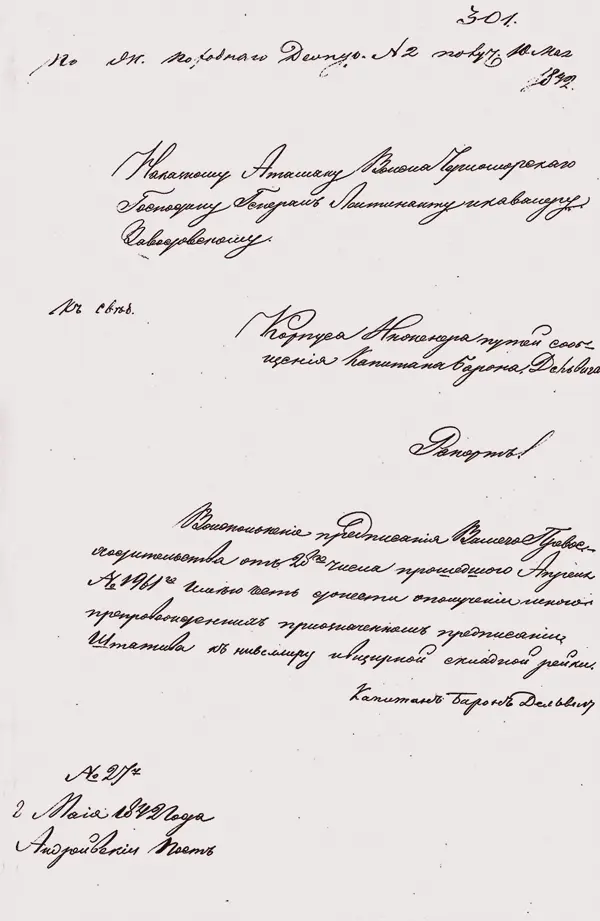 301.
По Эк. № 2 получ. 10 Мая
1842.
Наказному Атаману Войска Черноморскаго
Господину Генералъ Лейтинанту и кавалеру
Заводовскому.
Къ свѣд.
Корпуса Инженера путей сооб-
щенія Капитана Барона Дельвига
Рапортъ!
Во исполненіе предписанія Вашего Превос-
ходительства отъ 28го числа прошедшаго Апрѣля
№ 1961го имѣю честь донести о полученіи мною
препровожденныхъ при означенномъ предписаніи,
Штатива къ нивелиру и складной рейки.
Капитанъ Баронъ Дельвигъ
№ 27й
2 Маія 1842 года
Андреевскій Постъ